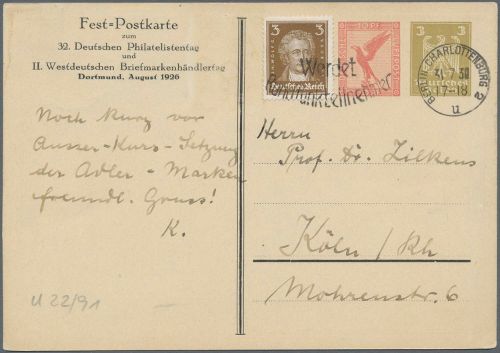 Fest=Postkarte
zum
32. Deutschen Philatelistentag
und
II. Westdeutschen Briefmarkenhändlertag
Dortmund, August 1926
Noch kurz vor
Ausser-Kurs-Setzung
der Adler-Marken
freundl. Gruss!
K.
U 22/91
3
3
Deutsches Reich
10 PF
3
Werdet
Rundfunkteilnehmer
BERLIN-CHARLOTTENBURG 2
31.7.30
17-18
u
Herrn
Prof. Dr. Zilkens
Köln/Rh
Mohrenstr. 6